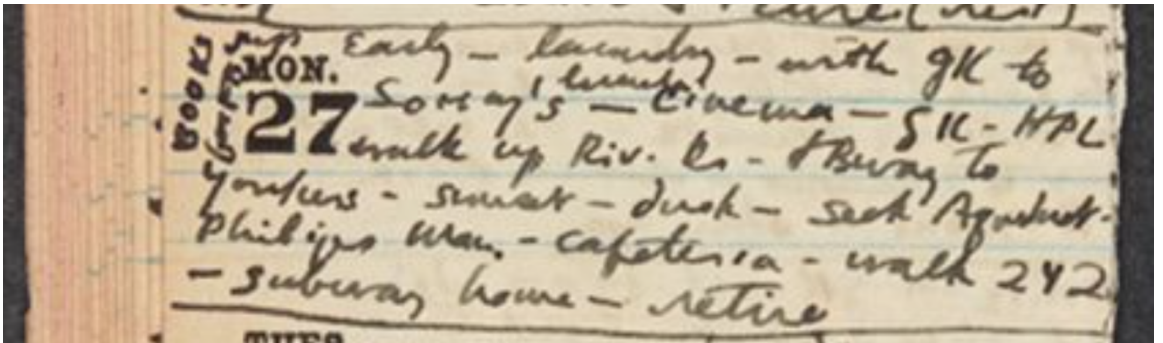 MON.
27
BOOKS
up Early – laundry – with GK to
lunch
Sonny's – Cinema – GK - HPL
walk up Riv. Dr – & Bway to
Yonkers - sunset – dusk – seek Aqueduct -
Philipse Man. - cafeteria - walk 242
– subway home – retire
TUES